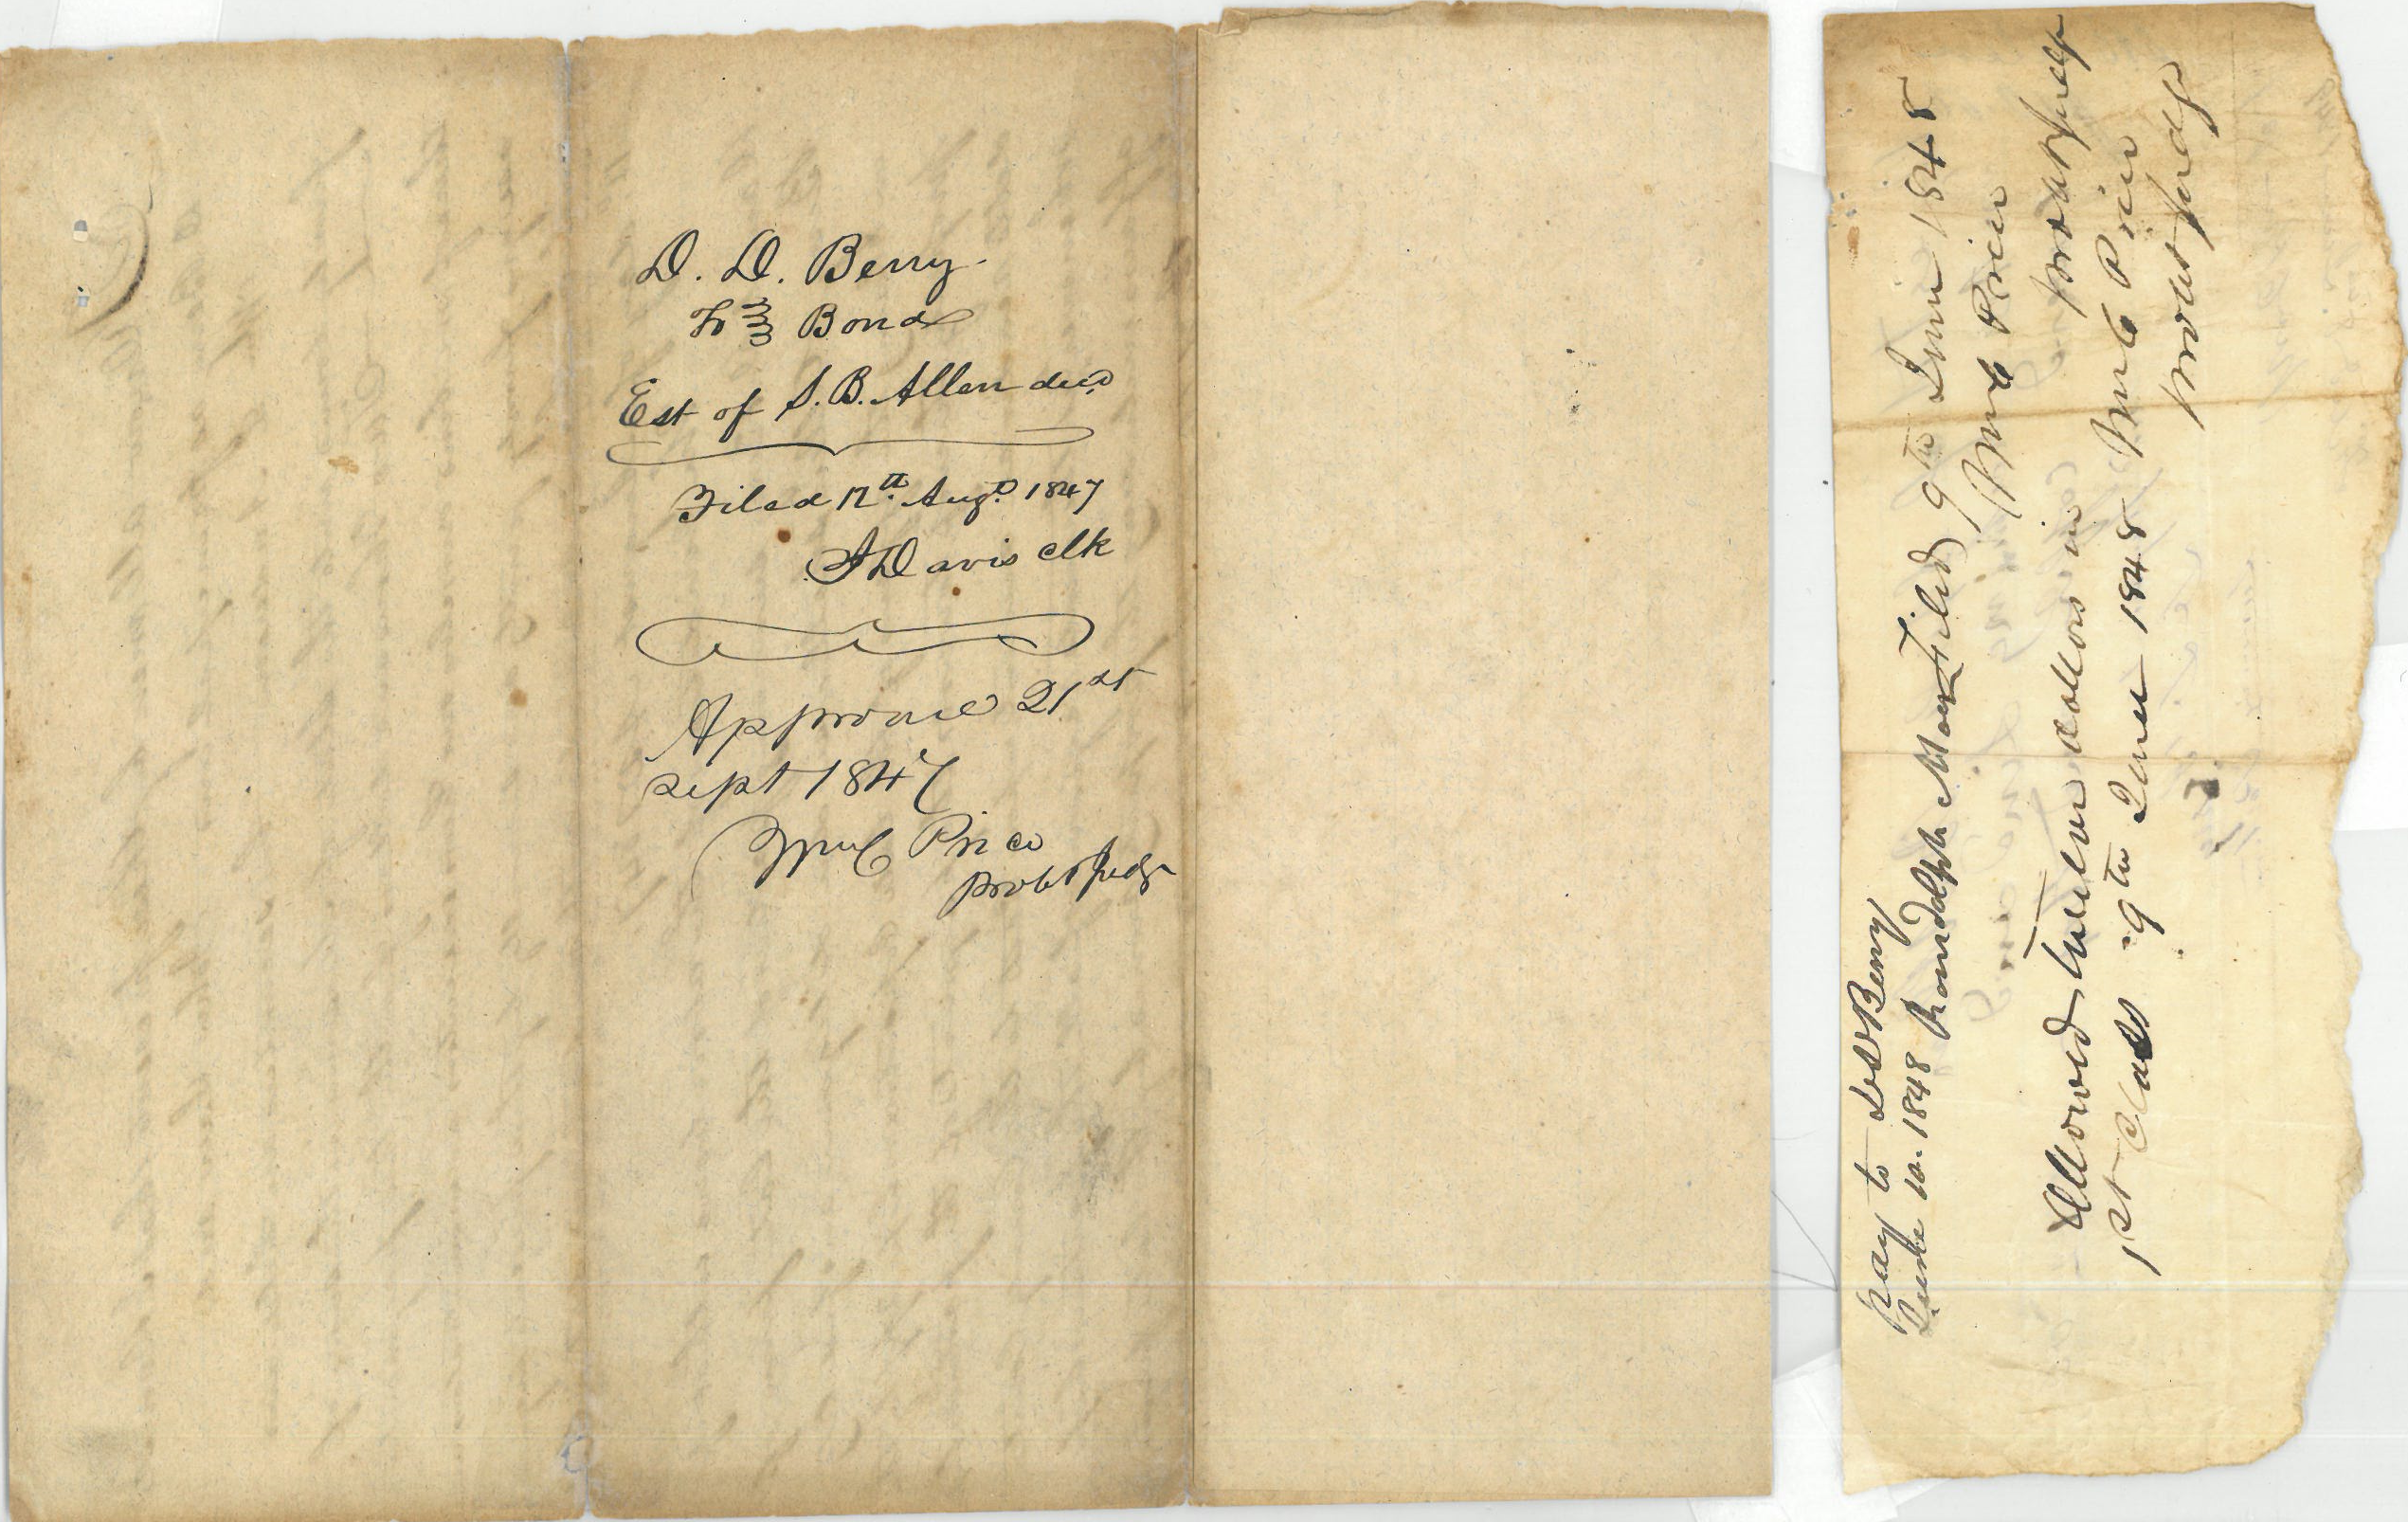 D. D. Berry
To Bond
Est of S. B. Allen decd
Filed 12th Augt 1847
J Davis clk
Approved 21st
Sept 1847
Wm C Price
Probt Judge
Pay to D D Berry
June 10. 1848 Randolph
Filed 9th June 1848
Wm C Price
Probt Judge
Allowed twelve dollars in
1st Class 9th June 1848 Wm C Price
Probt Judge